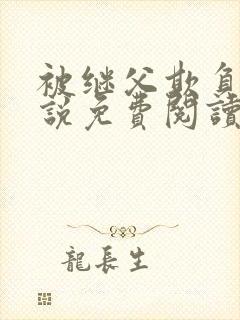 被继父欺负
說免費閱讀
龍長生